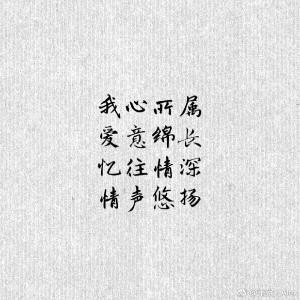 我心所属
爱意绵长
忆往情深
情声悠扬